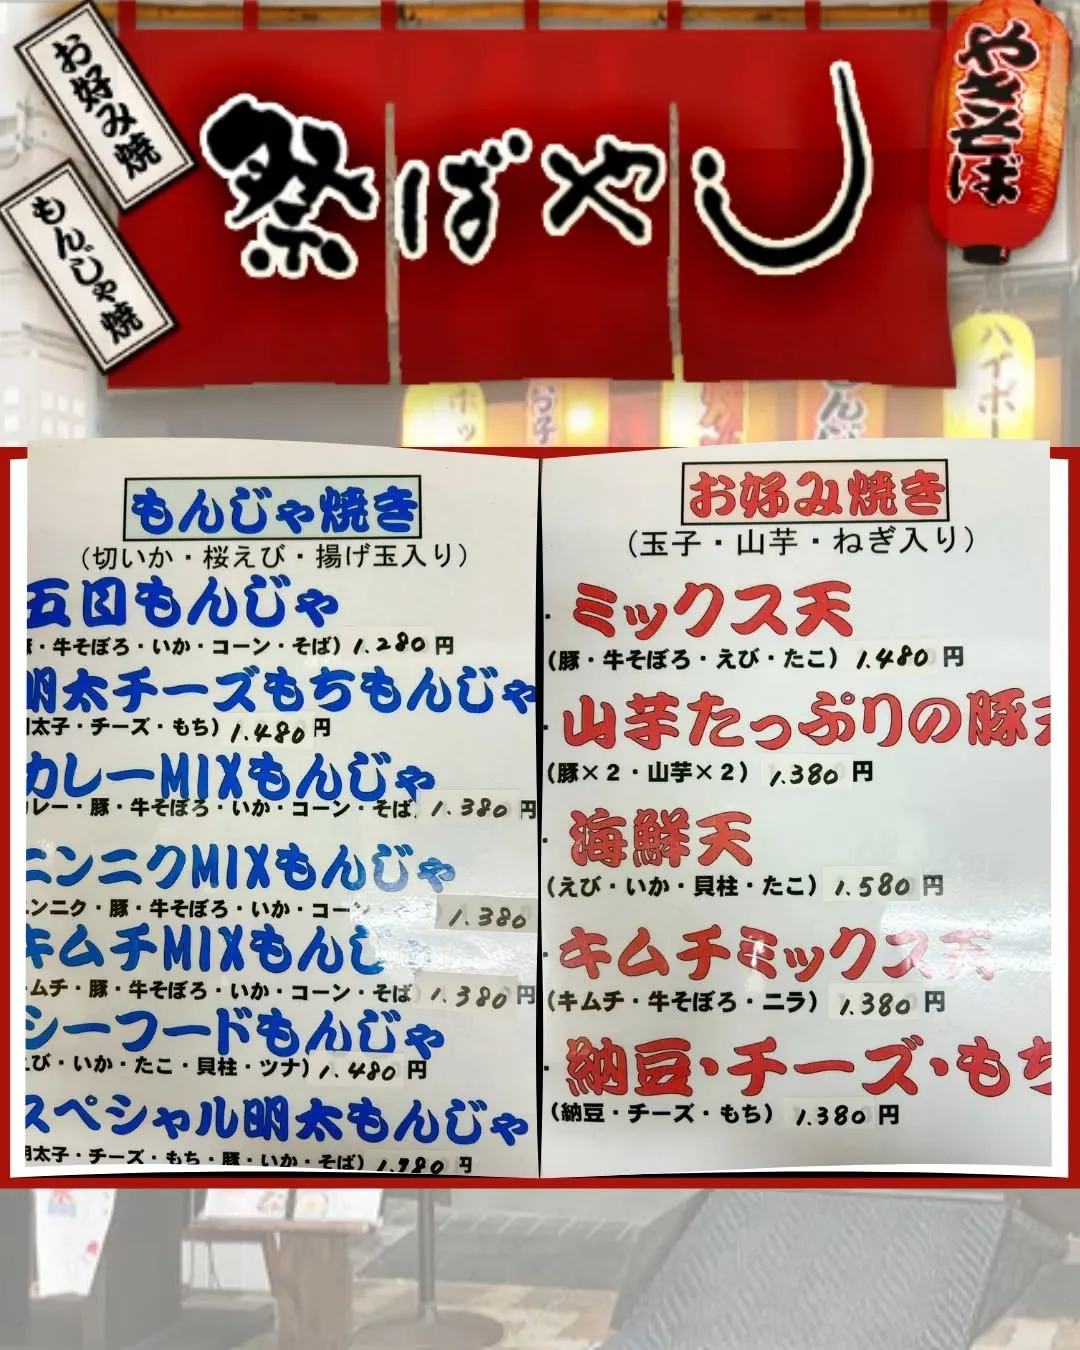 お好み焼
もんじゃ焼
祭ばやし
やきそば
ハイボー
ホッ
お好
もんじ
もんじゃ焼き
(切いか・桜えび・揚げ玉入り)
五目もんじゃ
・牛そぼろ・いか・コーン・そば) 1.280円
明太チーズもちもんじゃ
太子・チーズ・もち) 1.480円
カレーMIXもんじゃ
レー・豚・牛そぼろ・いか・コーン・そば 1.380円
ニンニクMIXもんじゃ
ンニク・豚・牛そぼろ・いか・コーン 1.380
キムチMIXもんじ
ムチ・豚・牛そぼろ・いか・コーン・そば 1.380円
シーフードもんじゃ
び・いか・たこ・貝柱・ツナ) 1.480円
スペシャル明太もんじゃ
太子・チーズ・もち・豚・いか・そば) 1.780円
お好み焼き
(玉子・山芋・ねぎ入り)
・ミックス天
(豚・牛そぼろ・えび・たこ) 1.480円
・山芋たっぷりの豚天
(豚×2・山芋×2) 1.380円
・海鮮天
(えび・いか・貝柱・たこ) 1.580円
・キムチミックス天
(キムチ・牛そぼろ・ニラ) 1.380円
・納豆・チーズ・もち
(納豆・チーズ・もち) 1.380円